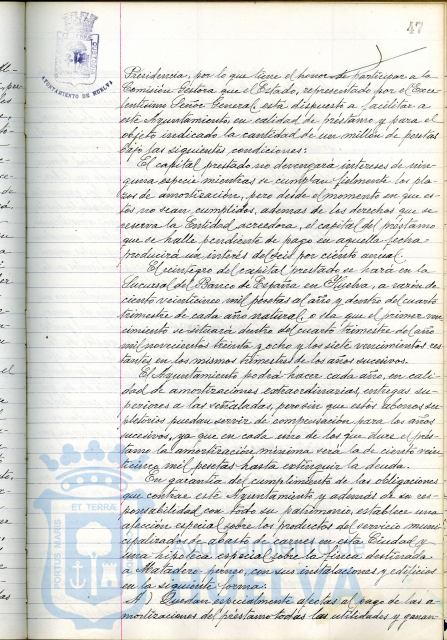 47
AYUNTAMIENTO DE HUELVA
Presidencia, por lo que tiene el honor de participar a la
Comisión Gestora que el Estado, representado por el Exce-
lentísimo Señor General, está dispuesto a facilitar a
este Ayuntamiento, en calidad de préstamo y para el
objeto indicado la cantidad de un millón de pesetas
bajo las siguientes condiciones:
El capital prestado no devengará intereses de nin-
guna especie mientras se cumplan fielmente los pla-
zos de amortización, pero desde el momento en que es-
tos no sean cumplidos, además de los derechos que se
reserva la Entidad acreedora, el capital del préstamo
que se halle pendiente de pago en aquella fecha
producirá un interés del seis por ciento anual.
El reintegro del capital prestado se hará en la
Sucursal del Banco de España en Huelva, a razón de
ciento veinticinco mil pesetas al año y dentro del cuarto
trimestre de cada año natural, o sea que el primer ven-
cimiento se situará dentro del cuarto trimestre del año
mil novecientos treinta y ocho y los siete vencimientos res-
tantes en los mismos trimestres de los años sucesivos.
El Ayuntamiento podrá hacer cada año, en cali-
dad de amortizaciones extraordinarias, entregas su-
periores a las señaladas, pero sin que estos abonos su-
pletorios puedan servir de compensación para los años
sucesivos, ya que en cada uno de los que dure el prés-
tamo la amortización mínima será la de ciento vein-
ticinco mil pesetas hasta extinguir la deuda.
En garantía del cumplimiento de las obligaciones
que contrae este Ayuntamiento y además de su res-
ponsabilidad con todo su patrimonio, establece una
afección especial sobre los productos del servicio muni-
cipalizado de abasto de carnes en esta Ciudad y
una hipoteca especial sobre la finca destinada
a Matadero público, con sus instalaciones y edificios
en la siguiente forma:
A) Quedan especialmente afectas al pago de las a-
mortizaciones del préstamo todas las utilidades y ganan-
PORTUS MARIS ET TERRA
HUELVA